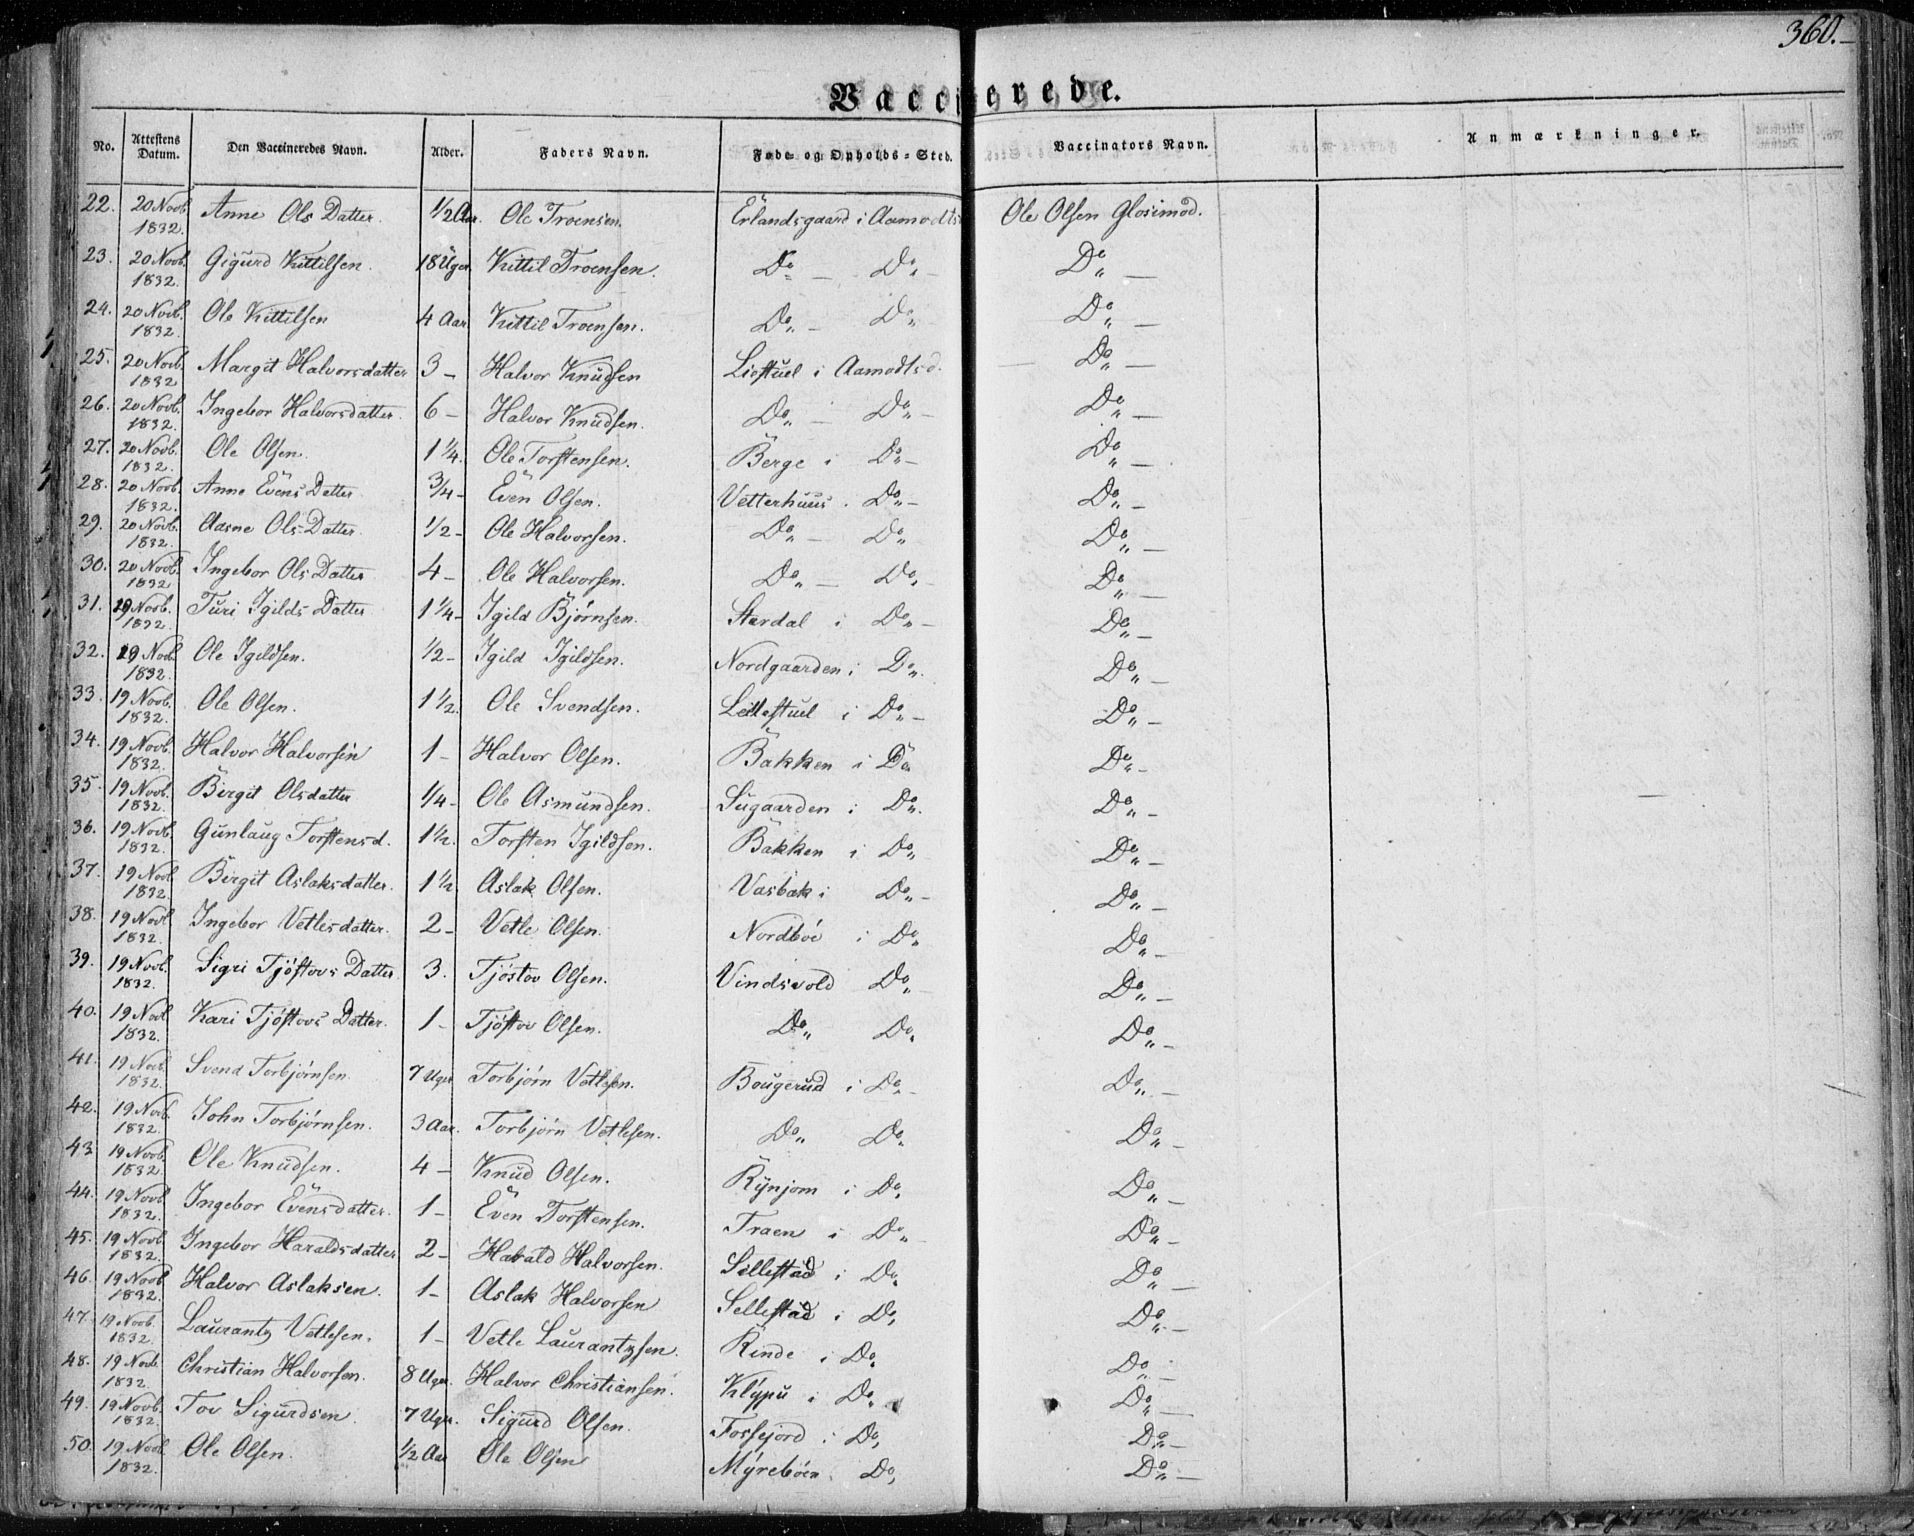 360.-
Vaccinerede.
No. Attestens Datum. Den Vaccineredes Navn. Alder. Faders Navn. Føde- og Opholds-Sted. Vaccinators Navn. Anmærkninger.
22. 20 Novb. 1832. Anne Ols Datter. 1/2 Aar. Ole Troensen. Erlandsgaard i Aamodts Ole Olsen Glosimod.
23. 20 Novb. 1832. Gigurd Kittilsen. 18 Uger. Kittil Troensen. Do „ — Do „ — Do „ —
24. 20 Novb. 1832. Ole Kittilsen 4 Aar. Kittil Troensen. Do „ — Do „ Do „ —
25. 20 Novb. 1832 Margit Halvorsdatter 3 — Halvor Knudsen Liostuel i Aamodts d. Do „ —
26. 20 Novb. 1832. Ingebor Halvorsdatter. 6 — Halvor Knudsen. Do „ — Do „ — Do „ —
27. 20 Novb. 1832. Ole Olsen. 1 1/4. Ole Torstensen. Berge i Do „ — Do „ —
28. 20 Novb. 1832. Anne Evens Datter 3/4 — Even Olsen. Vetterhuus. Do „ — Do „ —
29. 20 Novb. 1832. Aasne Ols Datter 1/2 — Ole Halvorsen. Do „ — Do „ Do „ —
30. 20 Novb. 1832 Ingebor Ols Datter 4 — Ole Halvorsen. Do „ — Do „ Do „ —
31. 19 Novb. 1832. Turi Igilds Datter 1 1/4 — Igild Bjørnsen. Stardal i Do „ — Do „ —
32. 19 Novb. 1832. Ole Igildsen. 1/2 — Igild Igildsen. Nordgaarden i Do „ Do „ —
33. 19 Novb. 1832. Ole Olsen. 1 1/2. Ole Svendsen. Leilestuel i Do „ — Do „ —
34. 19 Novb. 1832. Halvor Halvorsen 1 — Halvor Olsen. Bakken i Do Do „ —
35. 19 Novb. 1832. Birgit Olsdatter 1/4 — Ole Asmundsen. Sugaarden i Do „ Do „ —
36. 19 Novb. 1832. Gunlaug Torstensd. 1 1/2. Torsten Igildsen. Bakken i Do „ Do „ —
37. 19 Novb. 1832. Birgit Aslaksdatter. 1 1/2 Aslak Olsen. Vasbak i Do „ — Do „ —
38. 19 Novb. 1832. Ingebor Vetlesdatter. 2 — Vetle Olsen. Nordbøe i Do „ Do „ —
39. 19 Novb. 1832. Sigri Tjøstovs Datter 3. Tjøstov Olsen. Vindsvold Do „ Do „ —
40. 19 Novb. 1832. Kari Tjøstovs Datter. 1 — Tjøstov Olsen. Do „ Do „ Do „ —
41. 19 Novb. 1832. Svend Torbjørnsen. 7 Uger Torbjørn Vetlesen. Bougerud i Do „ — Do „ —
42. 19 Novb. 1832. John Torbjørnsen. 3 Aar. Torbjørn Vetlesen. Do „ Do „ Do „ —
43. 19 Novb. 1832 Ole Knudsen. 4 — Knud Olsen. Rynjom i Do „ Do „ —
44. 19 Novb. 1832. Ingebor Evensdatter. 1 — Even Torstensen. Traen i Do „ Do „ —
45. 19 Novb. 1832. Ingebor Haraldsdatter 2 — Harald Halvorsen. Sellestad i Do „ Do „ —
46. 19 Novb. 1832. Halvor Aslaksen. 1 — Aslak Halvorsen Sellestad i Do „ Do „ —
47. 19 Novb. 1832. Laurantz Vetlesen. 1 — Vetle Laurantzsen. Rinde i Do „ Do „ —
48. 19 Novb. 1832. Christian Halvorsen. 8 Uger. Halvor Christiansen. Klypu i Do „ Do „ —
49. 19 Novb. 1832. Tov Sigurdsen. 7 Uger. Sigurd Olsen. Fossejord i Do „ Do „ —
50. 19 Novb. 1832. Ole Olsen. 1/2 Aar Ole Olsen Myrebøen. Do „ Do „ —